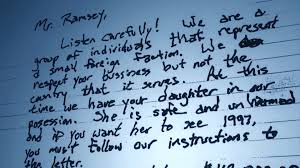 Mr. Ramsey,
Listen Carefully! We are a
group of individuals that represent
a small foreign faction. We
respect your bussiness but not the
country that it serves. At this
time we have your daughter in our
posession. She is safe and unharmed
and if you want her to see 1997,
you must follow our instructions to
the letter.